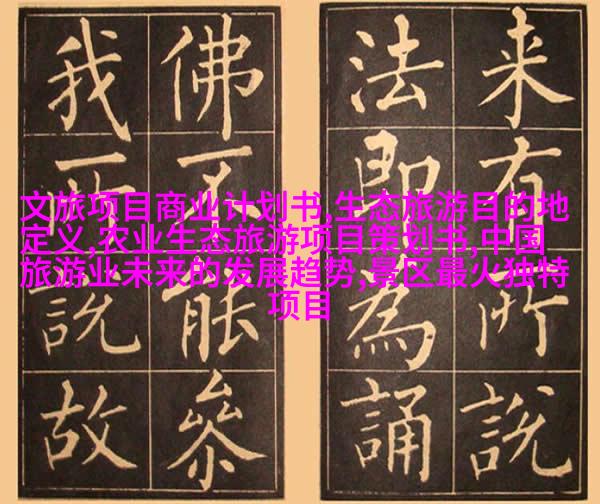 来有所說
法即為誦
佛不能參
我所說故
文旅项目商业计划书,生态旅游目的地
定义,农业生态旅游项目策划书,中国
旅游业未来的发展趋势,景区最火独特
项目